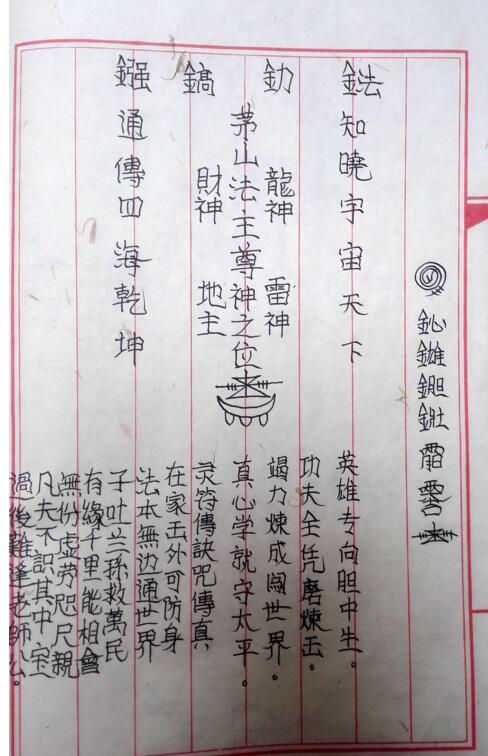 鈊
鍅知曉宇宙天下
釛 龍神 雷神
茅山法主尊神之位
鎬 財神 地主
鏹通傳四海乾坤
英雄专向胆中生。
功夫全凭磨煉出。
竭力煉成闯世界。
真心学就守太平。
灵符傳訣咒傳真
在家出外可防身
法本無边通世界
子吐兰孫救萬民
有緣千里能相會
無份虚劳咫尺親
凡夫不識其中宝
過後難逢老師公。